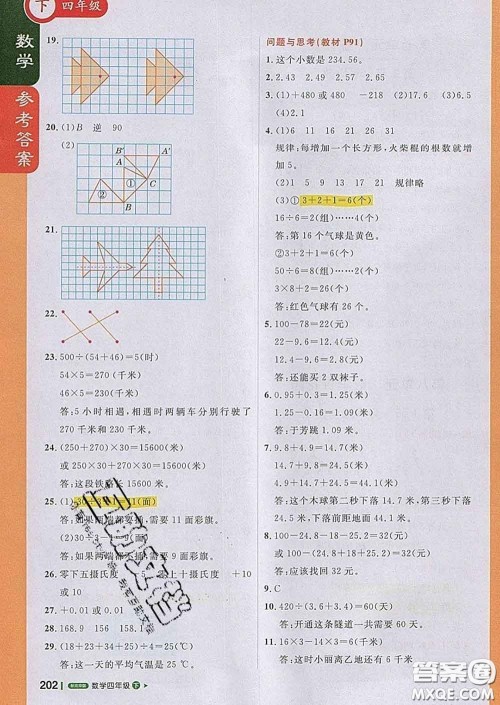 下 四年级
数学
参考答案
19.
20. (1)B 逆 90
(2)
B' A'
A
①
②
B C
21.
22.
23. 500÷(54+46)=5(时)
54×5=270(千米)
46×5=230(千米)
答:5小时相遇,相遇时两辆车分别行驶了
270千米和230千米。
24. (250+270)×30=15600(米)
或250×30+270×30=15600(米)
答:这段铁路长15600米。
25. (1)30÷3+1=11(面)
答:如果两端都要插,需要11面彩旗。
(2)30÷3
答:如果两端都不插,需要9面彩旗。
26. 零下五摄氏度 零上十摄氏度 +10
或10
27. +0.01或0.01
28. 168.9 156 158.1
29. (18+23+34+25)÷4=25(℃)
答:这一天的平均气温是25℃。
202 数学四年级 下
问题与思考(教材 P91)
1. 这个小数是234.56。
2. 2.43 2.49 16.32 27.65
3. (1)+480或480 -960 (2)+13 (3)6.5
(4)2.1
4. (1)6 11 16 21 26 31
规律:每增加一个长方形,火柴棍的根数就增
加5。
(2)1 5 9 13 17 21 规律略
(3)①3+2+1=6(个)
16÷6=2(组)……4(个)
答:第16个气球是黄色。
②3+2+1=6(个)
50÷6=8(组)……2(个)
3×8+2=26(个)
答:红色气球有26个。
5. 100-78=22(元)
22-9.2=12.8(元)
12.8-9.8=3(元)
答:还能买2双袜子。
6. 0.95+0.3=1.25(米)
1.25-0.17=1.08(米)
答:于芳跳1.09米。
7. 9.8+4.9=14.7(米)
14.7+9.8=24.5(米)
4.9+14.7+24.5=44.1(米)
答:这个木球第二秒下落14.7米,第三秒下
落24.5米,下落前距地面44.1米。
8. 100-(18+18÷2×5+5)=32(元)
答:应该找回32元。
9. C
10. 420÷(3.6+3.4)=60(天)
答:开通这条隧道一共需要60天。
11. 36×(15-3)÷3=144(千米)
答:这时小丽离乙地还有144千米。
答案圈
MXQE.COM